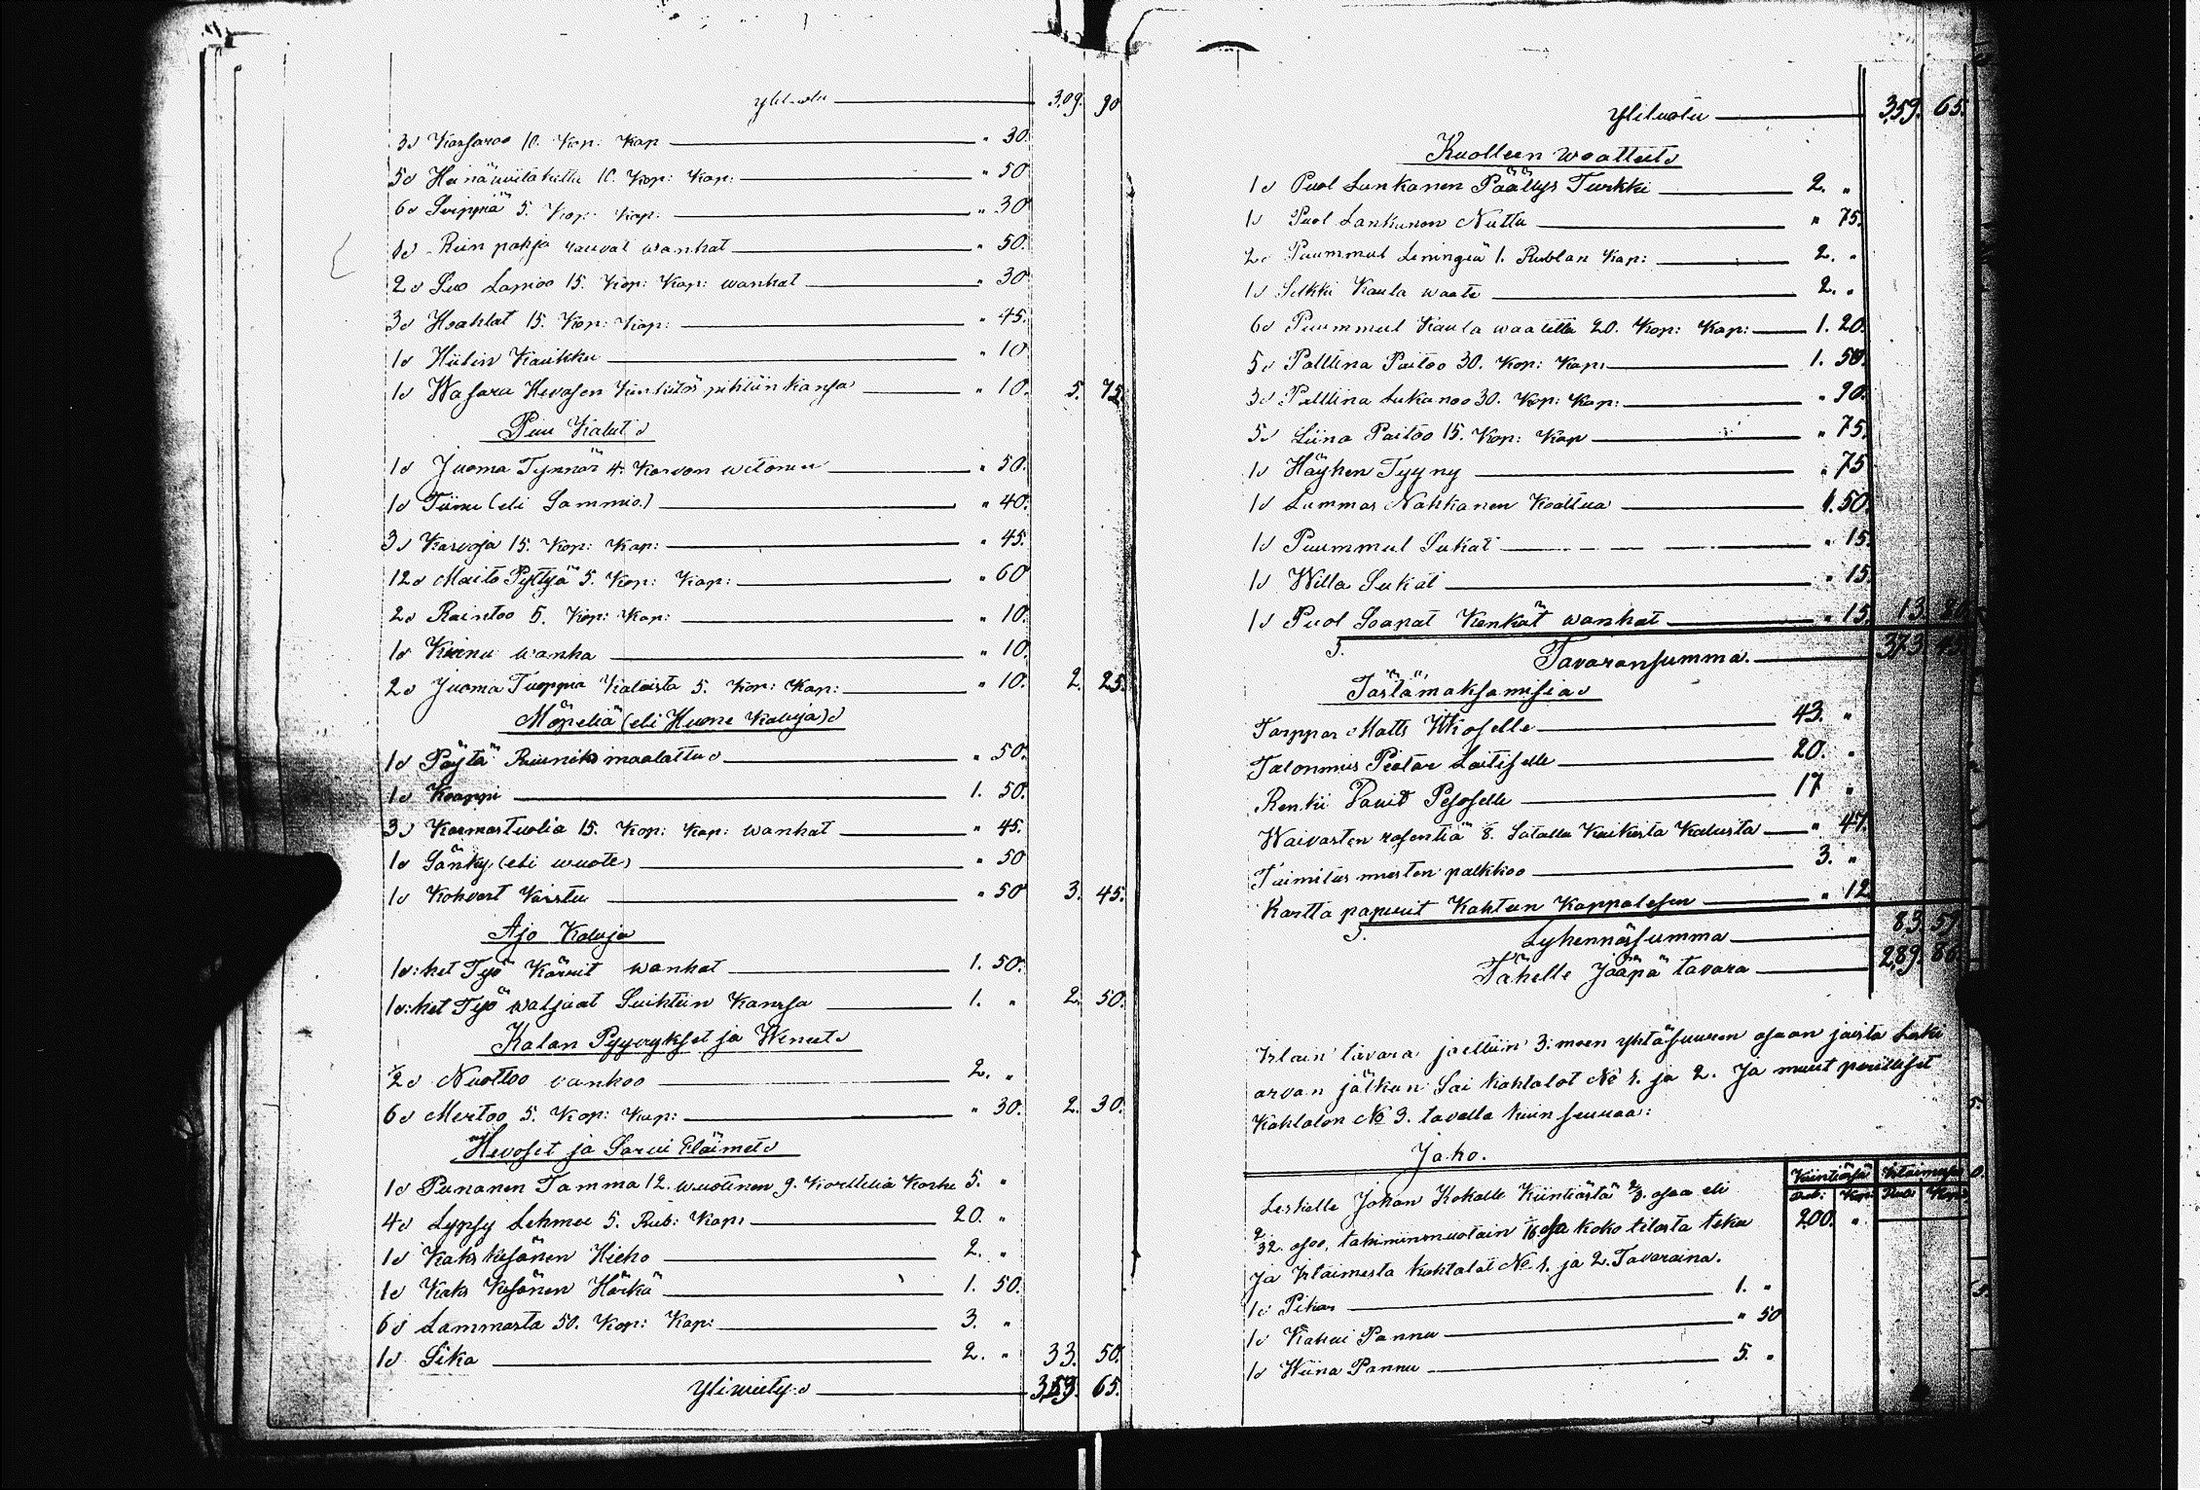 Ylituotu 309. 90
3 Karsaroo 10. Kop: Kap " 30.
5 Heinäwiitaketta 10. Kop: Kap: " 50
6 Sirppiä 5. Kop: Kap: " 30
1 Riin pohja rauvat wanhat " 50.
2 Suo Lapioo 15. Kop: Kap: wanhat " 30
3 Hoahlat 15. Kop: Kap: " 45.
1 Hiilin Kaukku " 10
1 Wasara Hevosen pihtiin kansa " 10. 5. 75.
Puu Kalut
1 Juoma Tynnör 4. Karvon wetonen " 50.
1 Tiinu (eli Sammio) " 40.
3 Karvoja 15. Kop: Kap: " 45.
12 Maito Pyttyä 5. Kop: Kap: " 60
2 Raintoo 5. Kop: Kap: " 10.
1 Kirnu wanha " 10.
2 Juoma Tuoppia Kaloista 5. Kop: Kap: " 10. 2. 25.
Möpeliä (eli Huone Kaluja)
1 Pöytä Ruuniks maalattu " 50.
1 Koappi 1. 50.
3 Karmastuolia 15. Kop: Kap: wanhat " 45.
1 Sänky (eli wuote) " 50
1 Kohvert Kirstu " 50 3. 45.
Ajo Kaluja
1:het Työ Kärrit wanhat 1. 50.
1:het Työ waljaat Suihtiin Kanssa 1. " 2. 50.
Kalan Pyyrykset ja Wenet
1/2 Nuottoo vanhoo 2. "
6 Mertoo 5. Kop: Kap: " 30. 2. 30.
Hevoset ja Sarvi Eläimet
1 Punanen Tamma 12. wuotinen 9. Korttelia Korke 5. "
4 Lypsy Lehmee 5. Rub: Kap: 20. "
1 Kaks kesänen Hieho 2. "
1 Kaks Kesänen Härkä 1. 50.
6 Lammasta 50. Kop: Kap: 3. "
1 Sika 2. " 33. 50.
Yliwiety 359. 65.
Ylituotu 359. 65.
Kuolleen woatteet
1 Puol Lankanen Päällys Turkki 2. "
1 Puol Lankanen Nuttu " 75.
2 Puummul Leningiä 1. Rublan Kap: 2. "
1 Silkki Kaula woate 2. "
6 Puummul Kaula waatetta 20. Kop: Kap: 1. 20.
5 Palttina Paitoo 30. Kop: Kap: 1. 50.
3 Palttina Lakanoo 30. Kop: Kap: " 90.
5 Liina Paitoo 15. Kop: Kap " 75.
1 Häyhen Tyyny " 75
1 Lammas Nahkanen Koaltua 1. 50.
1 Puummul Sukat " 15.
1 Willa Sukat " 15.
1 Puol Soapat Kenkät wanhat " 15. 13. 80
S. Tavaransumma. 373. 45
Tästämaksamisia
Torppar Matts Itkoselle 43. "
Talonmies Pietar Laitiselle 20. "
Renki Tavit Pesoselle 17 "
Waivasten rosentiä 8. Satalla Kaikesta Kalusta " 47.
Toimitus miesten palkkoo 3. "
Kartta papuut Kahteen Kappalesen " 12
S. Lyhennössumma 83. 59
Tähelle Jääpä tavara 289. 86.
Irtain tavara jaettiin 3:meen yhtäsuureen osaan joista Laki
arvan jälkeen Sai kahtalot No 1. ja 2. Ja muut perilliset
Kahtalon No 3. tavalla kuin seuraa:
Jako.
Kiintiässä Irtaimessa
Rub: Kop Rub Kop
Leskelle Johan Kokolle Kiintiästä 2/3. osaa eli
2/32. osoo, tahiminmuotoin 1/16 osa koko tilasta teku 200. "
Ja Irtaimesta Kahtalat No 1. ja 2. Tavaraina.
1 Pikar 1. "
1 Kahvi Pannu " 50
1 Wiina Pannu 5. "